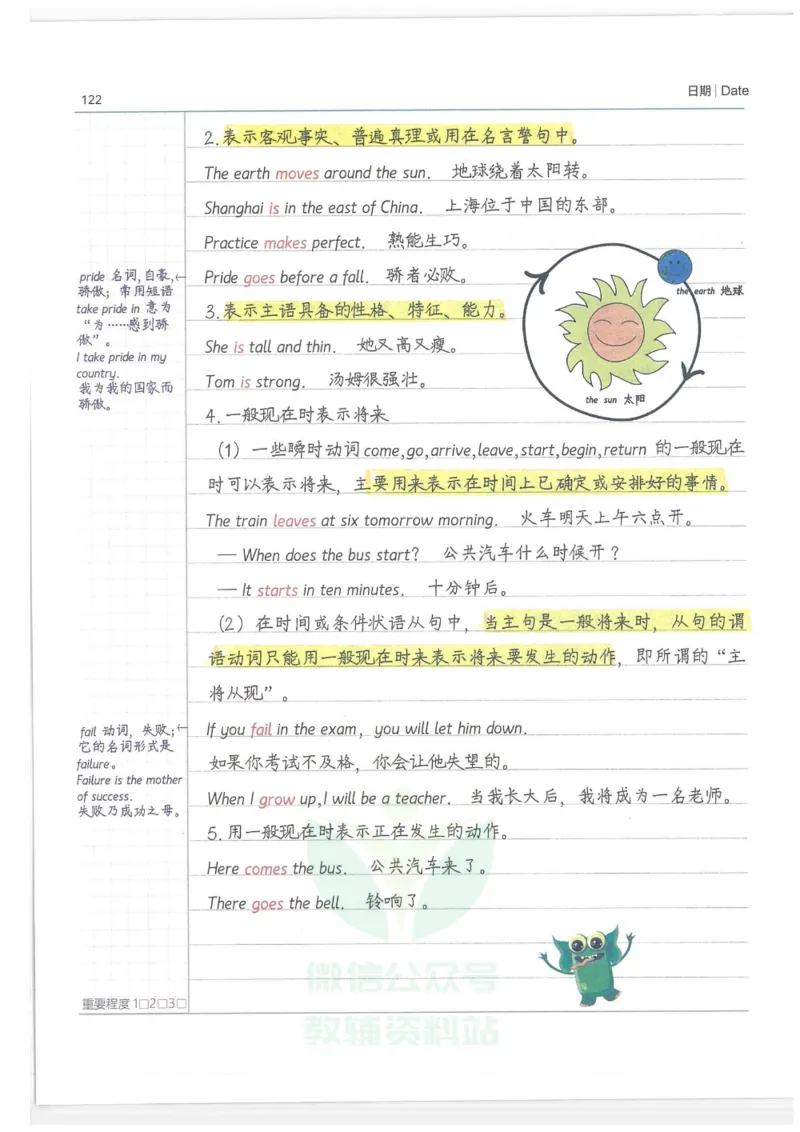 122
日期 | Date
2.表示客观事实、普遍真理或用在名言警句中。
The earth moves around the sun. 地球绕着太阳转。
Shanghai is in the east of China. 上海位于中国的东部。
Practice makes perfect. 熟能生巧。
Pride goes before a fall. 骄者必败。
3.表示主语具备的性格、特征、能力。
She is tall and thin. 她又高又瘦。
Tom is strong. 汤姆很强壮。
4.一般现在时表示将来
（1）一些瞬时动词come,go,arrive,leave,start,begin,return 的一般现在
时可以表示将来，主要用来表示在时间上已确定或安排好的事情。
The train leaves at six tomorrow morning. 火车明天上午六点开。
— When does the bus start? 公共汽车什么时候开？
— It starts in ten minutes. 十分钟后。
（2）在时间或条件状语从句中，当主句是一般将来时，从句的谓
语动词只能用一般现在时来表示将来要发生的动作，即所谓的“主
将从现”。
If you fail in the exam, you will let him down.
如果你考试不及格，你会让他失望的。
When I grow up,I will be a teacher. 当我长大后，我将成为一名老师。
5.用一般现在时表示正在发生的动作。
Here comes the bus. 公共汽车来了。
There goes the bell. 铃响了。
pride 名词,自豪,←
骄傲；常用短语
take pride in 意为
“为……感到骄
傲”。
I take pride in my
country.
我为我的国家而
骄傲。
the earth 地球
the sun 太阳
fail 动词，失败；←
它的名词形式是
failure。
Failure is the mother
of success.
失败乃成功之母。
重要程度1□2□3□
微信公众号
教辅资料站